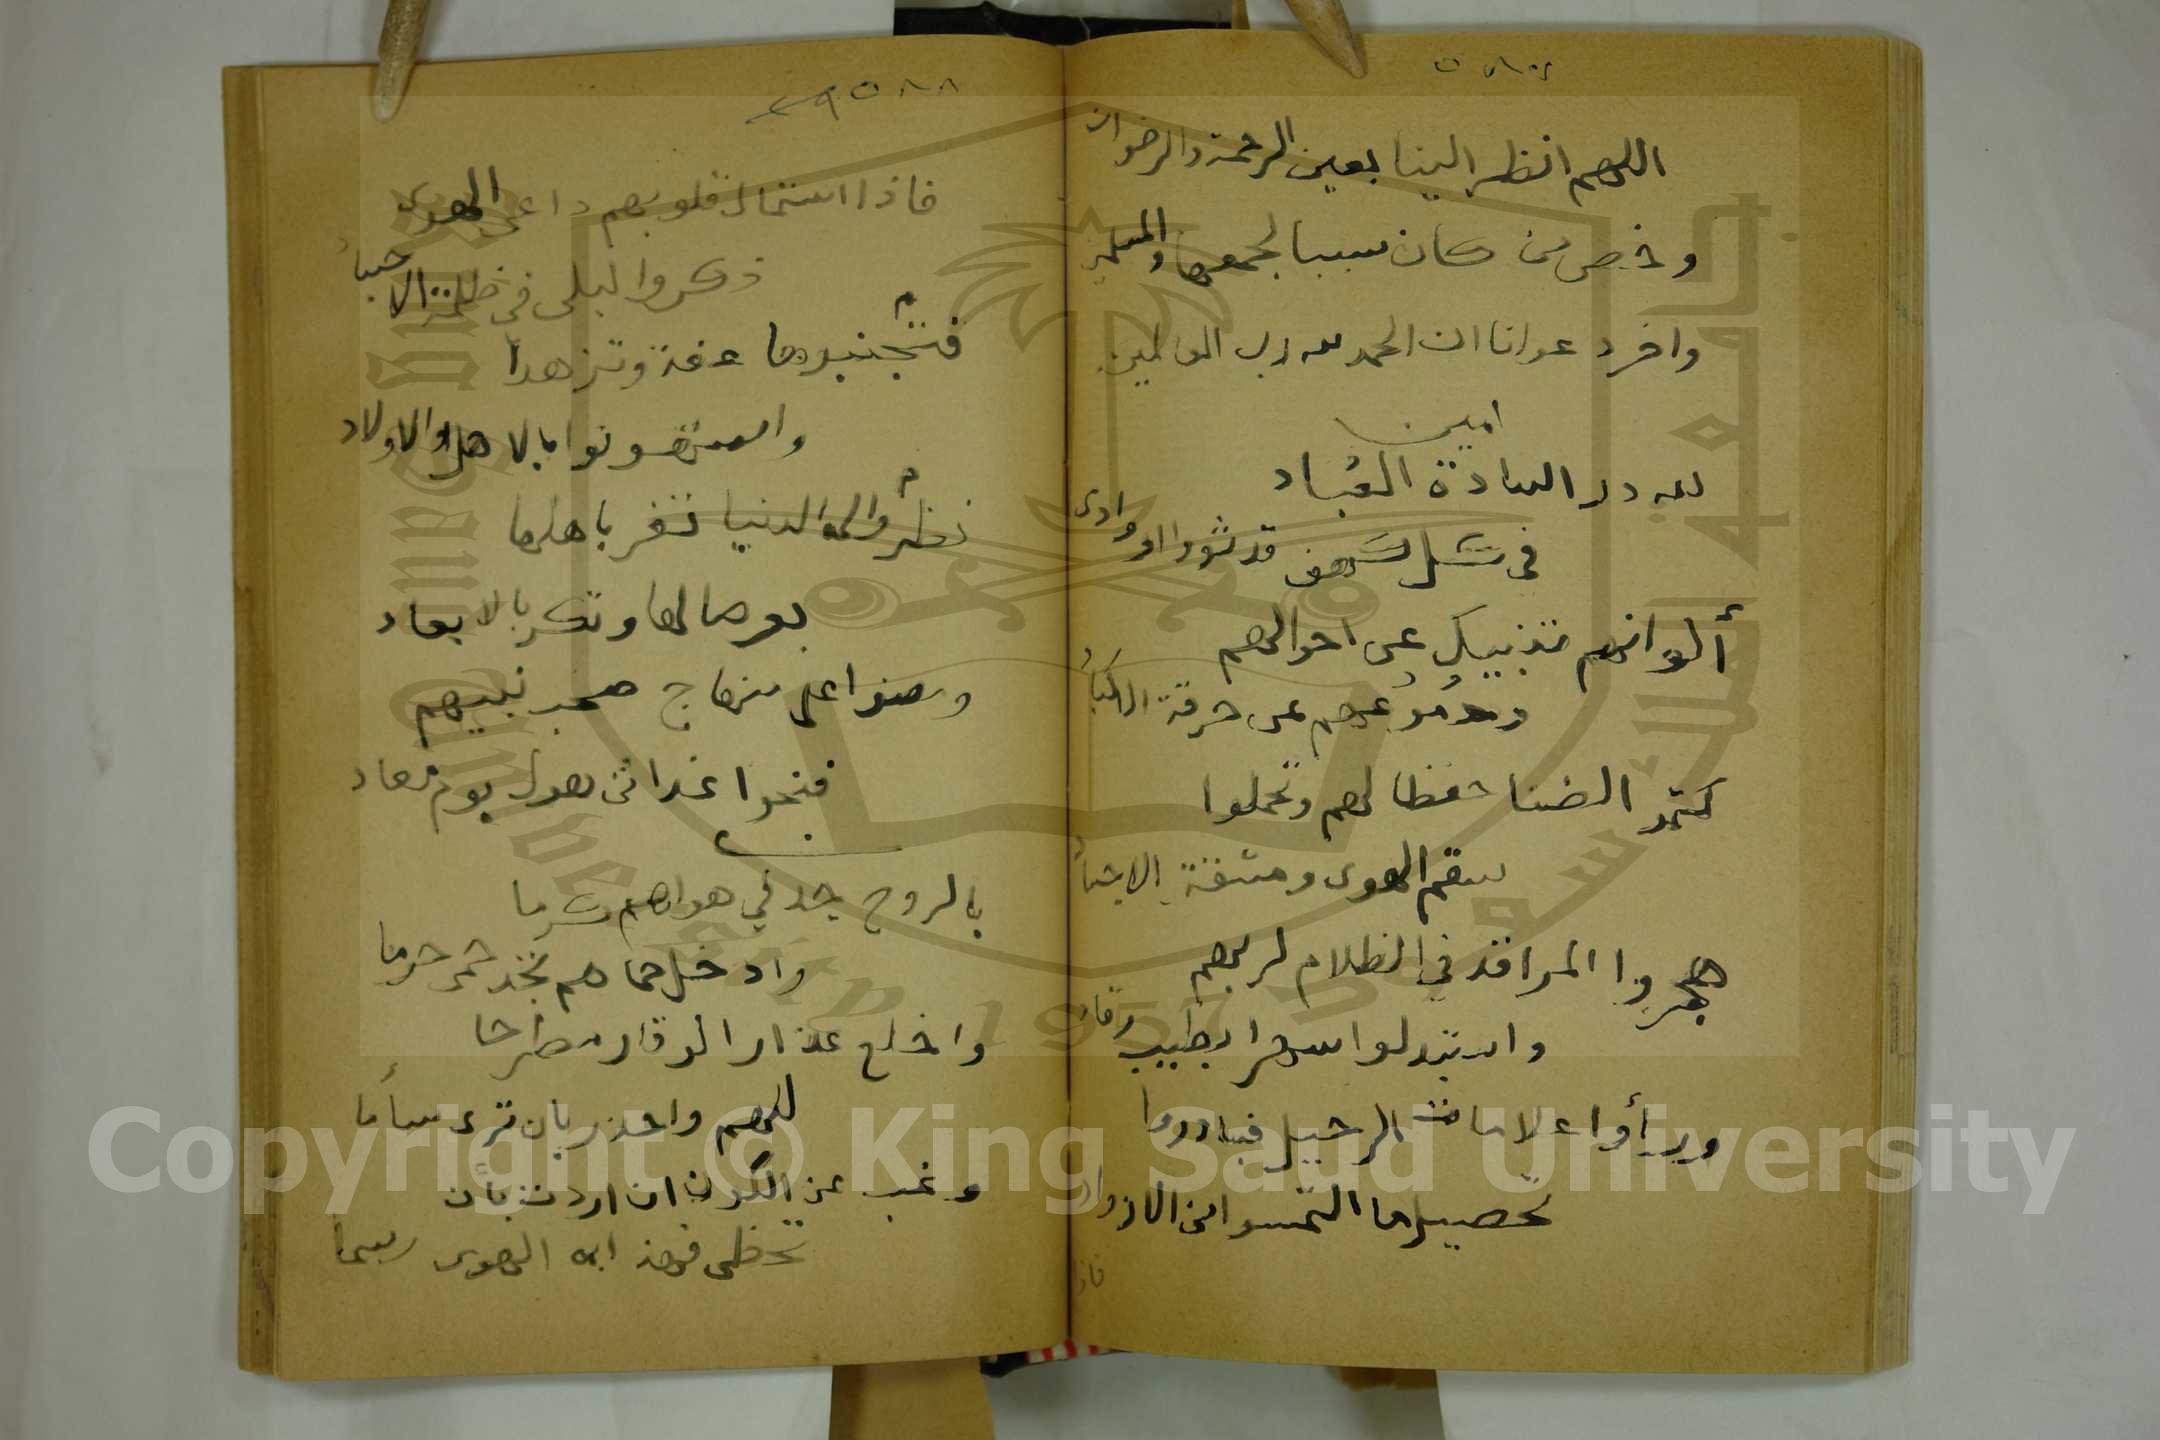 اللهم انظر الينا بعين الرحمة والرضوان
وخص من كان سببا لجمعها والمسلمين
واخر دعوانا ان الحمد لله رب العالمين
امين
لله در السادة العباد
في كل كهف قد ثووا او وادى
ألوانهم تنبيك عن احوالهم
ودموعهم عن حرقة الاكباد
كتموا الضنا حفظا لهم وتحملوا
سقم الهوى ومشقة الاجساد
هجروا المراقد في الظلام لربهم
واستبدلوا سهرا بطيب رقاد
ورأوا علامات الرحيل فبادروا
تحصيل ما التمسوا من الازواد
فاذا
٥٨٨
فاذا استمال قلوبهم داعى الهوى
ذكروا البلى في ظلمة الالحاد
فتجنبوها عفة وتزهدا
واستهونوا بالاهل والاولاد
نظروا الى الدنيا تغر باهلها
بوصالها وتكر بالابعاد
ومضوا على منهاج صحب نبيهم
فنجوا غدا من هول يوم معاد
بالروح جد في هواهم كرما
وادخل حماهم تجد حمى حرما
واخلع عذار الوقار مطرحا
لهم واحذر بان ترى سأما
وغب عن الكون ان اردت بأن
تحظى فهذا به الهوى رسما
Copyright © King Saud University
جامعة الملك سعود
King Saud University
1957